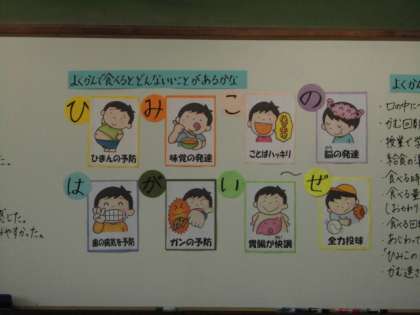 よくかんで食べるとどんないいことがあるかな
よくか
ひ
み
こ
の
ひまんの予防
味覚の発達
ことばハッキリ
脳の発達
は
が
い〜
ぜ
歯の病気を予防
ガンの予防
胃腸が快調
全力投球
た。
した。
みやすかった。
・口の中に
・かむ回数
・授業で学
・給食の
・食べる時
・食べる量
しおかわり
・食べる回
・あじわって
「ひみこの
・かむ速さ